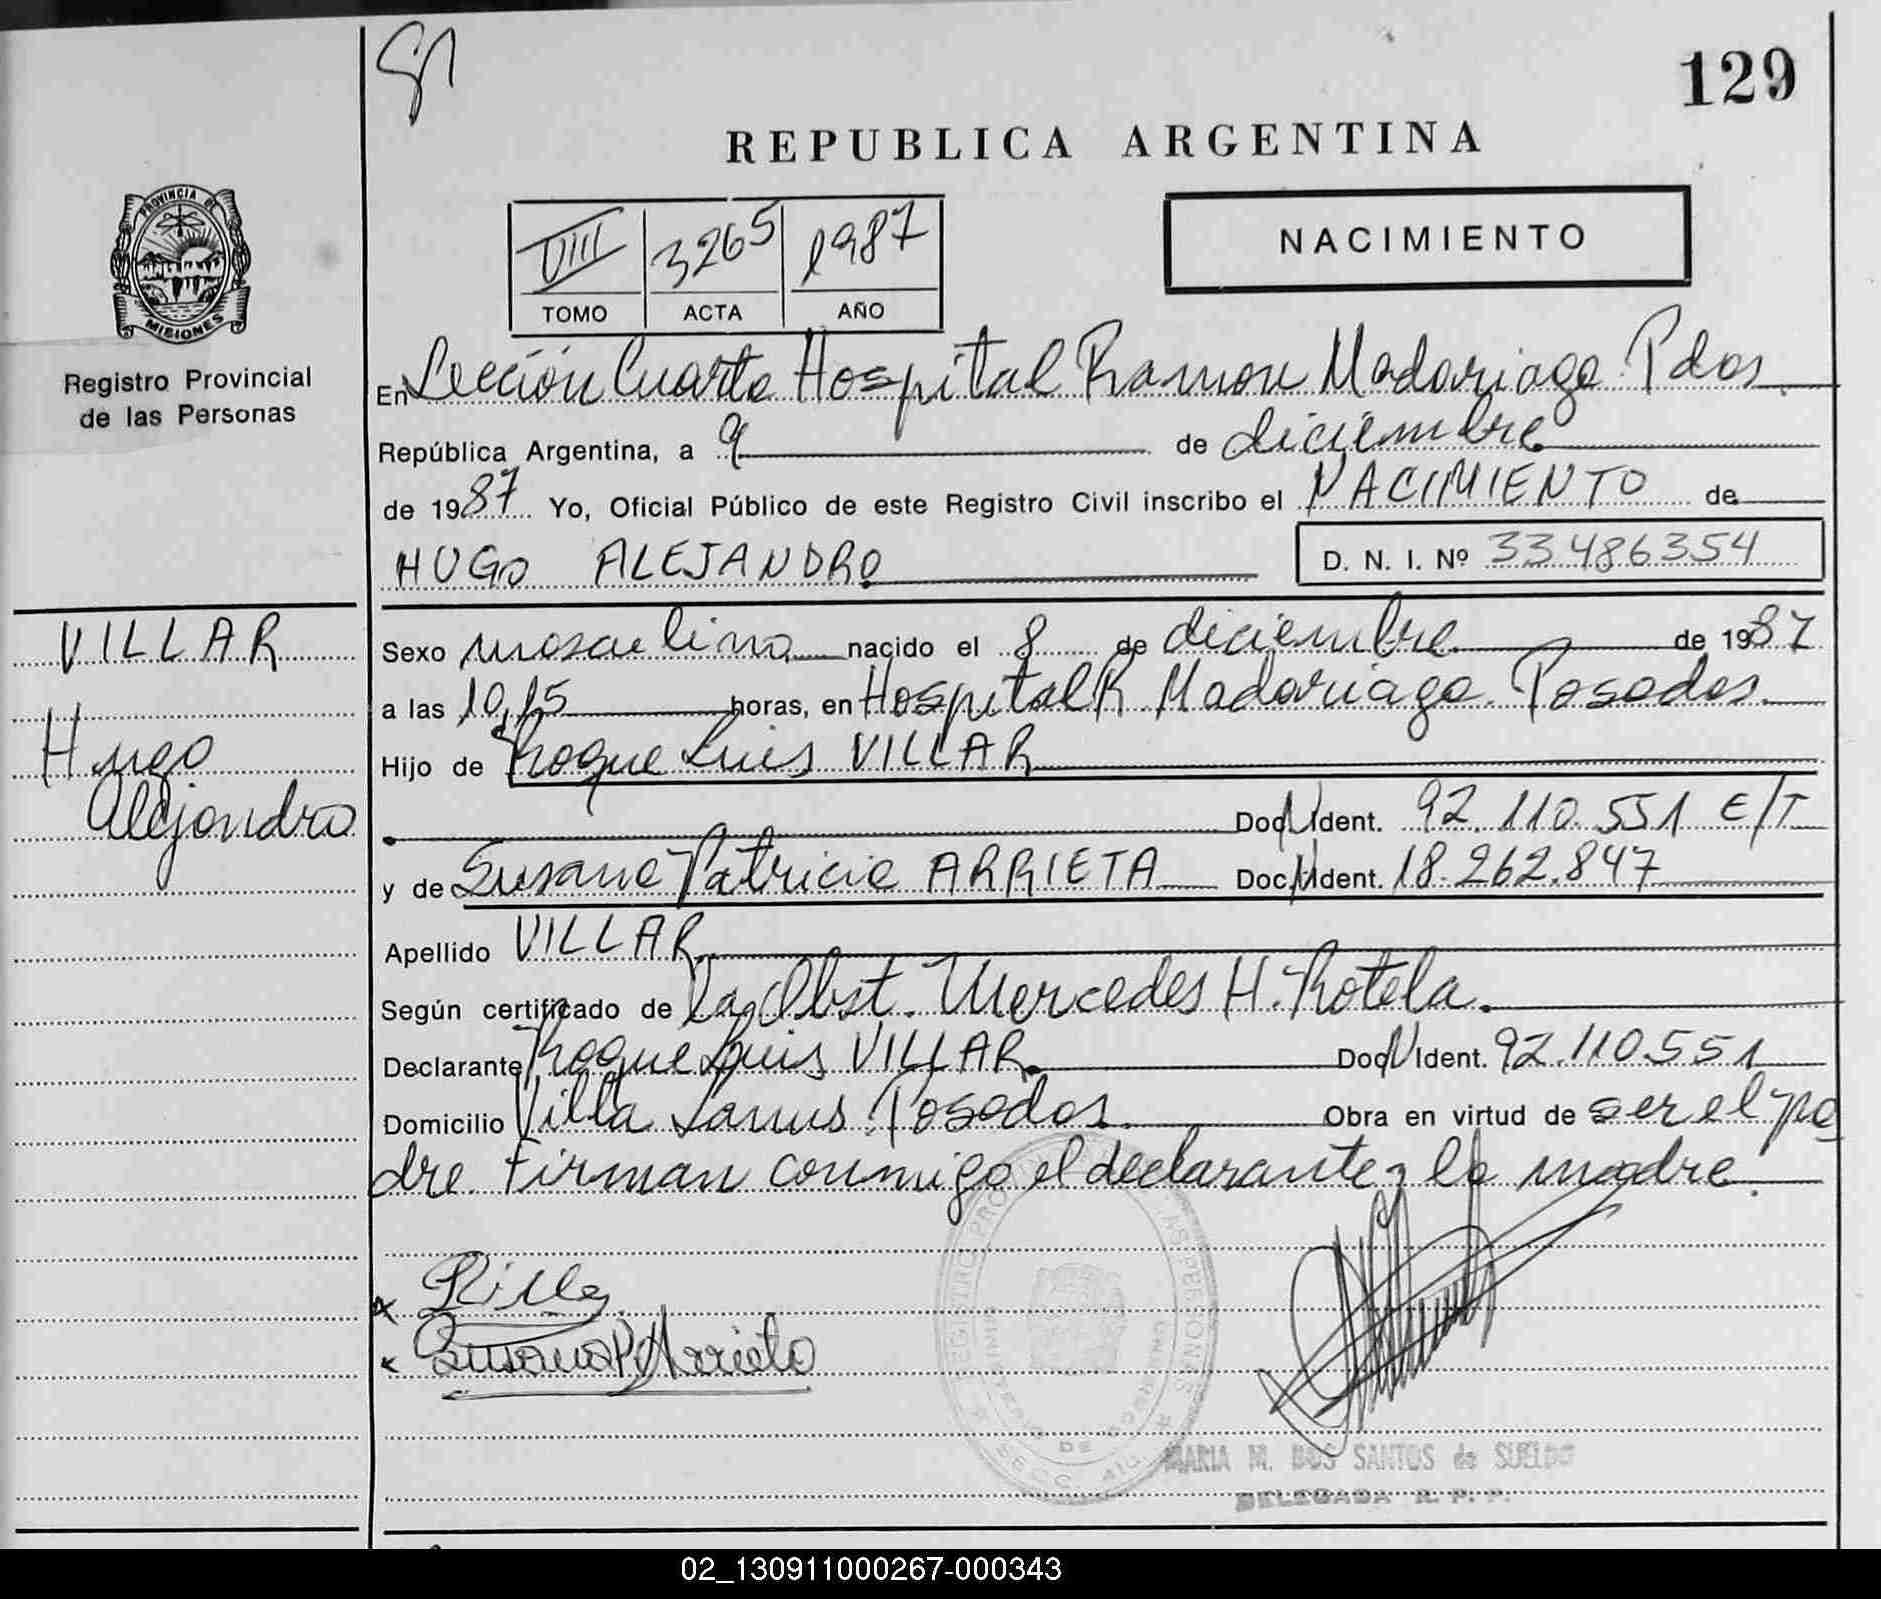 129
REPUBLICA ARGENTINA
PROVINCIA DE
MISIONES
Registro Provincial
de las Personas
VIII 3265 1987
TOMO ACTA AÑO
NACIMIENTO
En Sección Cuarta Hospital Ramon Madariaga Pdas.
República Argentina, a 9 de diciembre
de 1987 Yo, Oficial Público de este Registro Civil inscribo el NACIMIENTO de
HUGO ALEJANDRO
D. N. I. Nº 33.486354
VILLAR
Hugo
Alejandro
Sexo masculino nacido el 8 de diciembre de 1987
a las 10,15 horas, en Hospital R. Madariaga. Posadas.
Hijo de Roque Luis VILLAR
Doc. Ident. 92.110.551 E/T
y de Susana Patricia ARRIETA Doc. Ident. 18.262.847
Apellido VILLAR
Según certificado de La Obst. Mercedes H. Rotela.
Declarante Roque Luis VILLAR Doc. Ident. 92.110.551
Domicilio Villa Lanus. Posadas. Obra en virtud de ser el pa
dre. Firman conmigo el declarante y la madre.
Susana P. Arrieta
MARIA M. DOS SANTOS de SUELDO
DELEGADA R. P. P.
02_130911000267-000343